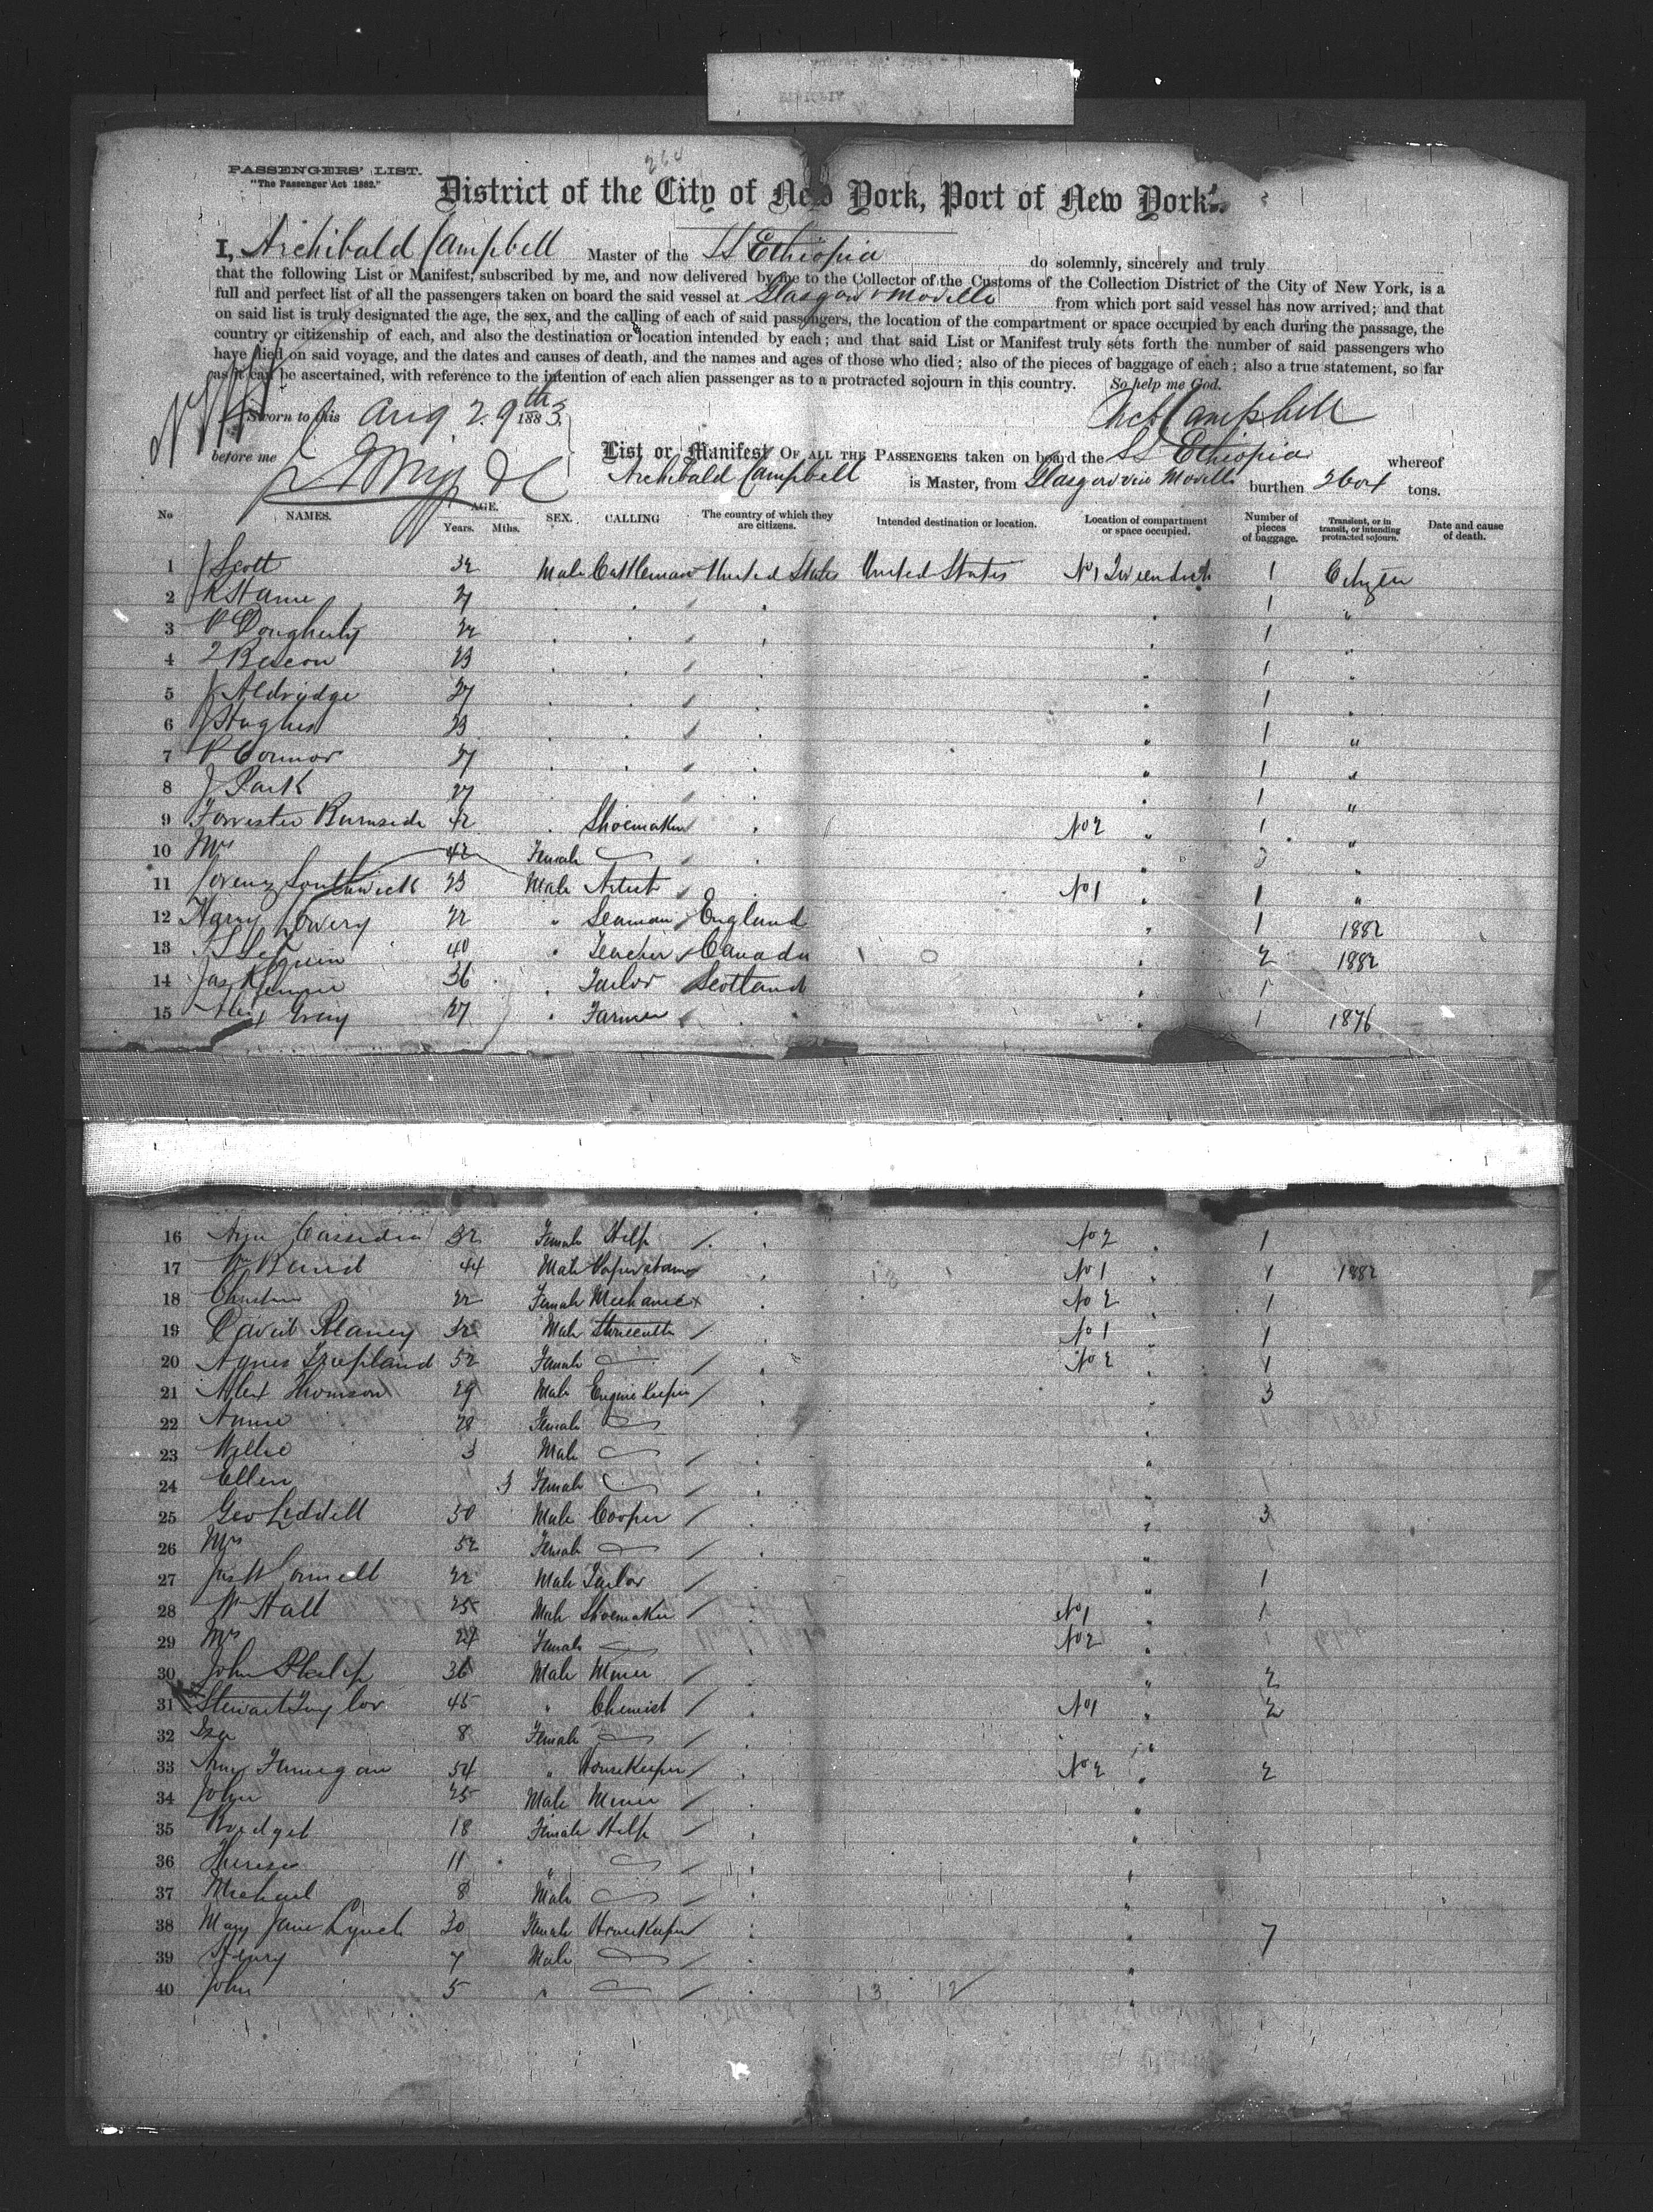 264
PASSENGERS' LIST.
"The Passenger Act 1882."
District of the City of New York, Port of New York.
I, Archibald Campbell Master of the SS Ethiopia do solemnly, sincerely and truly
that the following List or Manifest, subscribed by me, and now delivered by me to the Collector of the Customs of the Collection District of the City of New York, is a
full and perfect list of all the passengers taken on board the said vessel at Glasgow & Moville from which port said vessel has now arrived; and that
on said list is truly designated the age, the sex, and the calling of each of said passengers, the location of the compartment or space occupied by each during the passage, the
country or citizenship of each, and also the destination or location intended by each; and that said List or Manifest truly sets forth the number of said passengers who
have died on said voyage, and the dates and causes of death, and the names and ages of those who died; also of the pieces of baggage of each; also a true statement, so far
as it can be ascertained, with reference to the intention of each alien passenger as to a protracted sojourn in this country. So help me God.
Sworn to this Aug 29th 1883. Arch Campbell
before me
List or Manifest OF ALL THE PASSENGERS taken on board the SS Ethiopia whereof
Archibald Campbell is Master, from Glasgow via Moville burthen 2604 tons.
No NAMES. AGE. Years. Mths. SEX. CALLING The country of which they are citizens. Intended destination or location. Location of compartment or space occupied. Number of pieces of baggage. Transient, or in transit, or intending protracted sojourn. Date and cause of death.
1 J Scott 32 Male Cattleman United States United States No 1 1 Citizen
2 27 1 "
3 P Dougherty 22 1 "
4 Bacon 23 1 "
5 J Aldridge 27 1 "
6 J Hughes 23 1 "
7 P Connor 27 1 "
8 J Park 27 1 "
9 Forrester Burnside 42 Shoemaker No 2 1 "
10 Mrs 42 Female "
11 Southwick 23 Male Artist No 1 1 "
12 Harry Lowery 22 " Seaman England 1 1882
13 Seguin 40 " Teacher Canada 2 1882
14 Jas 36 Tailor Scotland 1
15 Alex Gray 27 " Farmer 1 1876
16 Ann 32 Female Help No 2 1
17 Wm 44 Male No 1 1 1882
18 22 Female Mechanic No 2 1
19 David 32 Male Stonecutter No 1 1
20 Agnes 52 Female No 2 1
21 Alex Thomson 29 Male Engine Keeper 3
22 Annie 28 Female
23 Willie 3 Male
24 Ellen 3 Female
25 Geo Liddell 50 Male Cooper 3
26 Mrs 52 Female
27 Jas 22 Male Tailor 1
28 Wm Hall 25 Male Shoemaker No 1 1
29 Mrs 24 Female No 2
30 John Philip 36 Male Miner 2
31 Stewart Taylor 45 " Chemist No 1 2
32 Isa 8 Female
33 Ann Finnegan 54 " Housekeeper No 2 2
34 John 25 Male Miner
35 Bridget 18 Female Help
36 Theresa 11 "
37 Michael 8 Male
38 Mary Jane Lynch 30 Female Housekeeper 7
39 Henry 7 Male
40 John 5 " 13 12